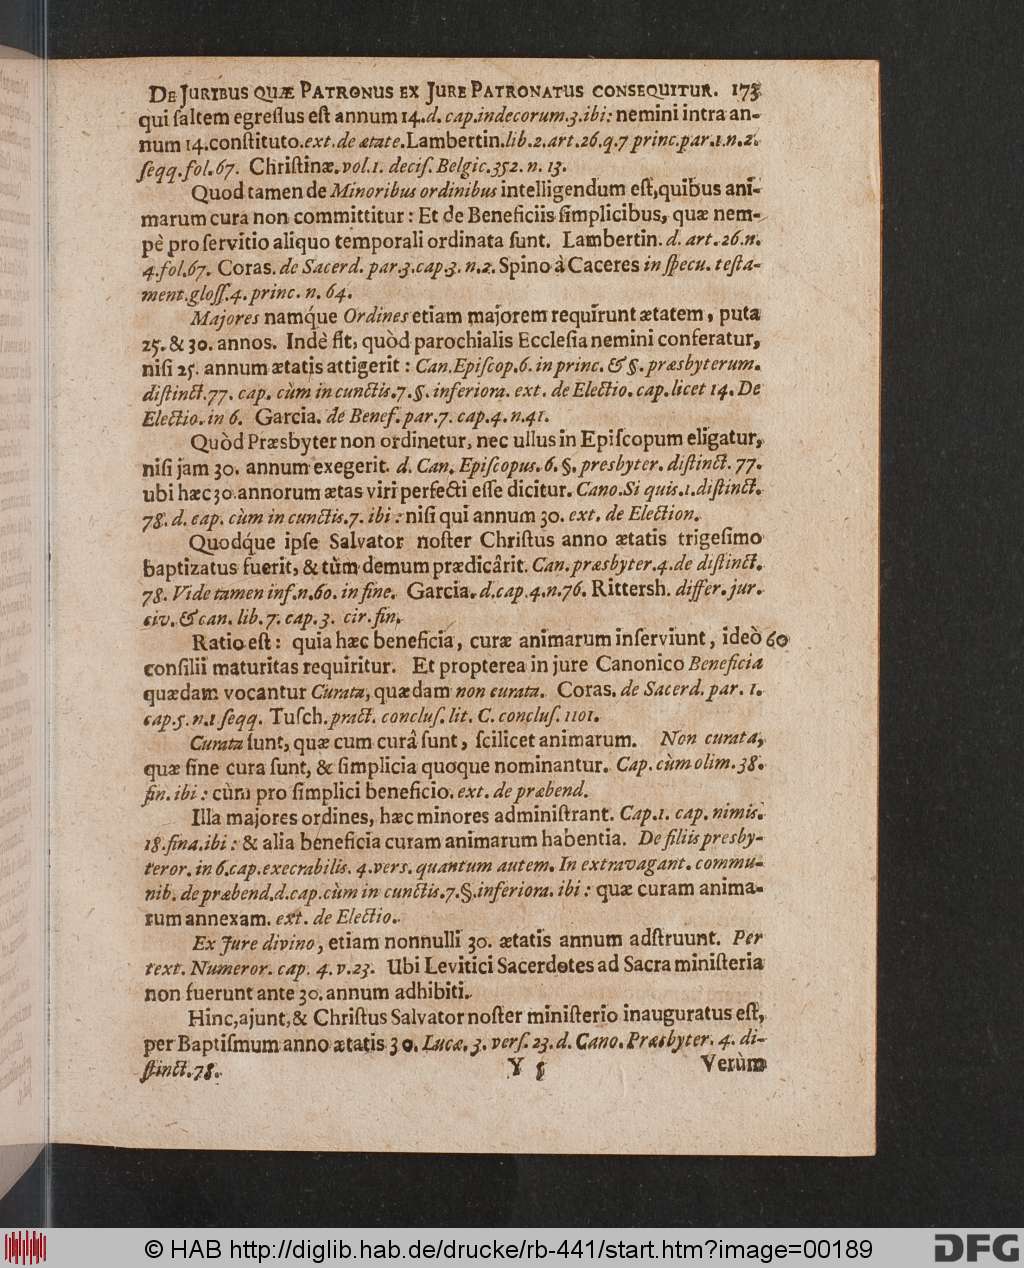 DE JURIBUS QUÆ PATRONUS EX JURE PATRONATUS CONSEQUITUR. 173
qui ſaltem egreſſus eſt annum 14. d. cap. indecorum. 3. ibi: nemini intra an-
num 14. conſtituto. ext. de ætate. Lambertin. lib. 2. art. 26. q. 7 princ. par. 1. n. 2.
ſeqq. fol. 67. Chriſtinæ. vol. 1. deciſ. Belgic. 352. n. 13.
Quod tamen de Minoribus ordinibus intelligendum eſt, quibus ani-
marum cura non committitur: Et de Beneficiis ſimplicibus, quæ nem-
pè pro ſervitio aliquo temporali ordinata ſunt. Lambertin. d. art. 26. n.
4. fol. 67. Coras. de Sacerd. par. 3. cap. 3. n. 2. Spino à Caceres in ſpecu. teſta-
ment. gloſſ. 4. princ. n. 64.
Majores namq́ue Ordines etiam majorem requirunt ætatem, puta
25. & 30. annos. Indè fit, quòd parochialis Eccleſia nemini conferatur,
niſi 25. annum ætatis attigerit: Can. Epiſcop. 6. in princ. & §. præsbyterum.
diſtinct. 77. cap. cùm in cunctis. 7. §. inferiora. ext. de Electio. cap. licet 14. De
Electio. in 6. Garcia. de Benef. par. 7. cap. 4. n. 41.
Quòd Præsbyter non ordinetur, nec ullus in Epiſcopum eligatur,
niſi jam 30. annum exegerit. d. Can. Epiſcopus. 6. §. presbyter. diſtinct. 77.
ubi hæc 30. annorum ætas viri perfecti eſſe dicitur. Cano. Si quis. 1. diſtinct.
78. d. cap. cùm in cunctis. 7. ibi: niſi qui annum 30. ext. de Election.
Quodq́ue ipſe Salvator noſter Chriſtus anno ætatis trigeſimo
baptizatus fuerit, & tùm demum prædicârit. Can. præsbyter. 4. de diſtinct.
78. Vide tamen inf. n. 60. in fine. Garcia. d. cap. 4. n. 76. Rittersh. differ. jur.
civ. & can. lib. 7. cap. 3. cir. fin.
Ratio eſt: quia hæc beneficia, curæ animarum inſerviunt, ideò 60
conſilii maturitas requiritur. Et propterea in jure Canonico Beneficia
quædam vocantur Curata, quædam non curata. Coras. de Sacerd. par. 1.
cap. 5. n. 1 ſeqq. Tuſch. pract. concluſ. lit. C. concluſ. 1101.
Curata ſunt, quæ cum curâ ſunt, ſcilicet animarum. Non curata,
quæ ſine cura ſunt, & ſimplicia quoque nominantur. Cap. cùm olim. 38.
fin. ibi: cùm pro ſimplici beneficio. ext. de præbend.
Illa majores ordines, hæc minores adminiſtrant. Cap. 1. cap. nimis.
18. fina. ibi: & alia beneficia curam animarum habentia. De filiis presby-
teror. in 6. cap. execrabilis. 4. vers. quantum autem. In extravagant. commu-
nib. de præbend. d. cap. cùm in cunctis. 7. §. inferiora. ibi: quæ curam anima-
rum annexam. ext. de Electio.
Ex Jure divino, etiam nonnulli 30. ætatis annum adſtruunt. Per
text. Numeror. cap. 4. v. 23. Ubi Levitici Sacerdotes ad Sacra miniſteria
non fuerunt ante 30. annum adhibiti.
Hinc, ajunt, & Chriſtus Salvator noſter miniſterio inauguratus eſt,
per Baptiſmum anno ætatis 30. Lucæ. 3. verſ. 23. d. Cano. Præsbyter. 4. di-
ſtinct. 78. Y Verùm
© HAB http://diglib.hab.de/drucke/rb-441/start.htm?image=00189 DFG